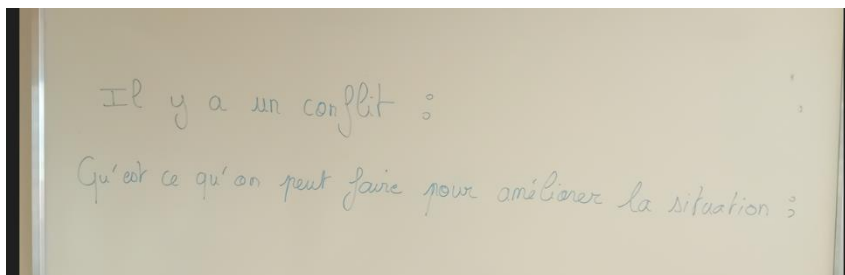 Il y a un conflit :
Qu'est ce qu'on peut faire pour améliorer la situation :